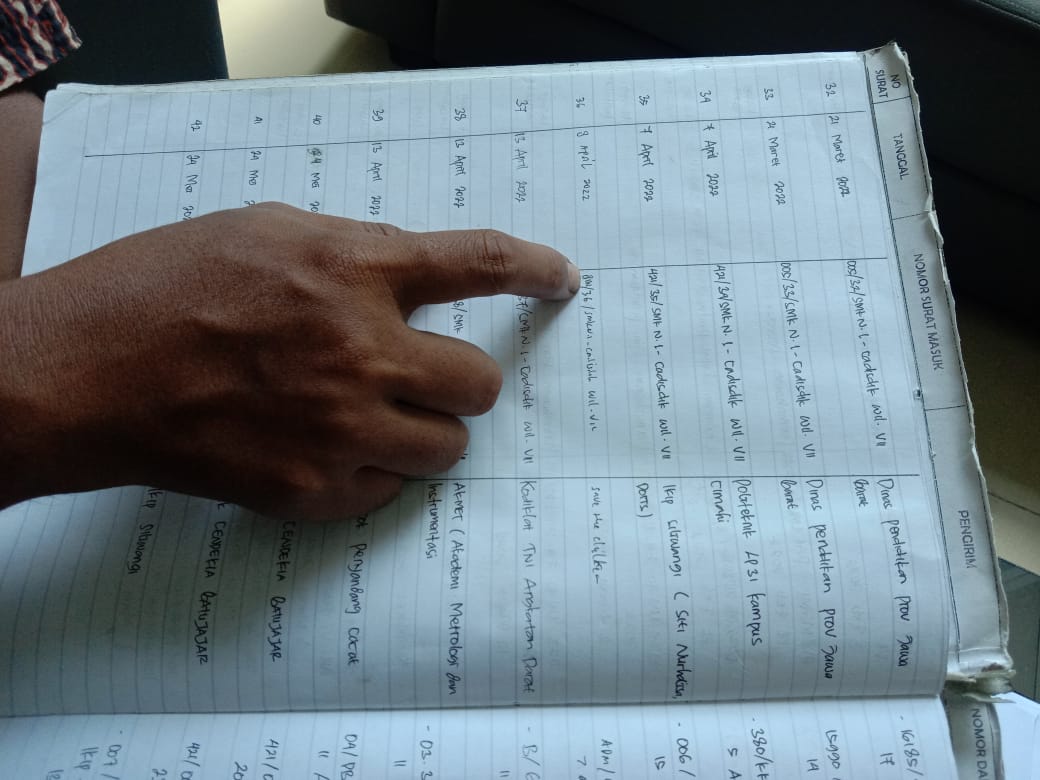 NO SURAT TANGGAL NOMOR SURAT MASUK PENGIRIM NOMOR DA
32 21 Maret 2022 005/32/SMK N.1-cadisdik wil. VII Dinas pendidikan prov Jawa - 16185/
Barat 17
33 21 Maret 2022 005/33/SMK N.1-cadisdik wil. VII Dinas pendidikan prov Jawa 15990
Barat 14
34 7 April 2022 421/34/SMK N.1-cadisdik wil. VII Politeknik LP3I kampus - 380/
cimahi 5 A
35 7 April 2022 421/35/SMK N.1-cadisdik wil. VII Ikip siliwangi ( Siti Nurhaliza, - 006/
Doris) 15
36 8 April 2022 /36/SMKN.1-cadisdik wil.VII save the children ADM/
7
37 13 April 2022 37/SMK N.1-cadisdik wil. VII Kodiklat TNI Angkatan Darat - B/
11
38 13 April 2022 8/SMK AKMET ( Akademi Metrologi dan - 03.
Instrumentasi 11
39 13 April 2022 penyandang cacat 04/
11
40 Mei 20 CENDEKIA BATUJAJAR 421/
20
41 24 Mei 2 CENDEKIA BATUJAJAR 421/
2
42 24 Mei 20 Ikip Siliwangi - 007/
Ikip